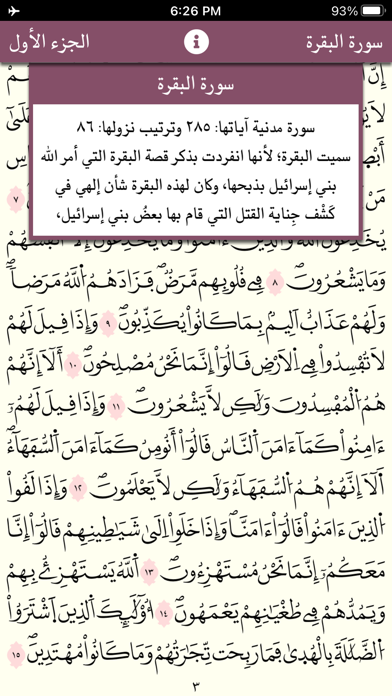 6:26 PM
93%
سورة البقرة
الجزء الأول
سورة البقرة
سورة مدنية آياتها: ٢٨٥ وترتيب نزولها: ٨٦
سميت البقرة؛ لأنها انفردت بذكر قصة البقرة التي أمر الله
بني إسرائيل بذبحها، وكان لهذه البقرة شأن إلهي في
كَشْف جِناية القتل التي قام بها بعضُ بني إسرائيل،
٧
وَمَا يَشْعُرُونَ ٨ فِي قُلُوبِهِم مَّرَضٌ فَزَادَهُمُ اللَّهُ مَرَضاً
وَلَهُمْ عَذَابٌ أَلِيمٌ بِمَا كَانُواْ يُكَذِّبُونَ ٩ وَإِذَا قِيلَ لَهُمْ
لَا تُفْسِدُواْ فِي الْأَرْضِ قَالُواْ إِنَّمَا نَحْنُ مُصْلِحُونَ ١٠ أَلَا إِنَّهُمْ
هُمُ الْمُفْسِدُونَ وَلَكِن لَّا يَشْعُرُونَ ١١ وَإِذَا قِيلَ لَهُمْ
ءَامِنُواْ كَمَا ءَامَنَ النَّاسُ قَالُواْ أَنُومِنُ كَمَا ءَامَنَ السُّفَهَاءُ
أَلَا إِنَّهُمْ هُمُ السُّفَهَاءُ وَلَكِن لَّا يَعْلَمُونَ ١٢ وَإِذَا لَقُواْ
الَّذِينَ ءَامَنُواْ قَالُواْ ءَامَنَّا وَإِذَا خَلَوِاْ إِلَى شَيَاطِينِهِمْ قَالُواْ إِنَّا
مَعَكُمْ إِنَّمَا نَحْنُ مُسْتَهْزِءُونَ ١٣ اللَّهُ يَسْتَهْزِئُ بِهِمْ
وَيَمُدُّهُمْ فِي طُغْيَانِهِمْ يَعْمَهُونَ ١٤ أُوْلَئِكَ الَّذِينَ اشْتَرَوُاْ
الضَّلَالَةَ بِالْهُدَى فَمَا رَبِحَت تِّجَارَتُهُمْ وَمَا كَانُواْ مُهْتَدِينَ ١٥
٣